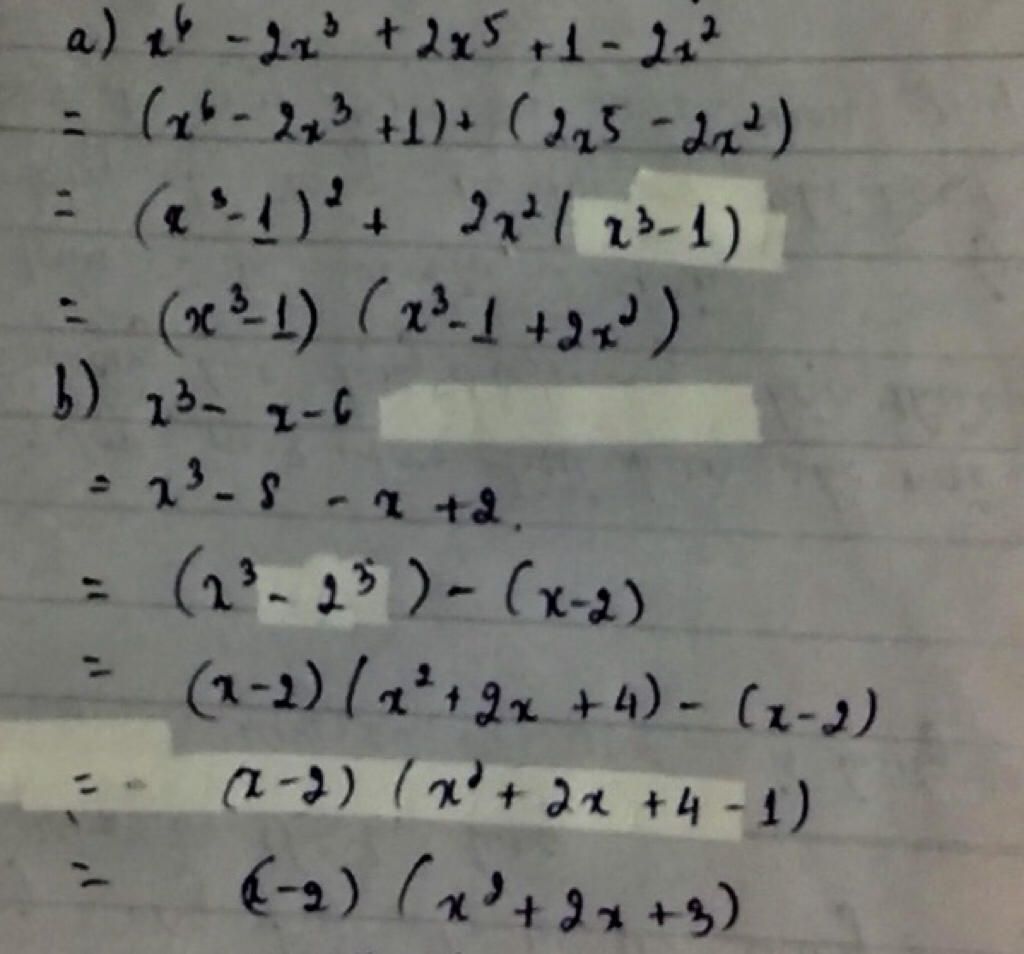 a) x⁶ - 2x³ + 2x⁵ + 1 - 2x²
= (x⁶ - 2x³ + 1) + (2x⁵ - 2x²)
= (x³ - 1)² + 2x² (x³ - 1)
= (x³ - 1) (x³ - 1 + 2x²)
b) x³ - x - 6
= x³ - 8 - x + 2.
= (x³ - 2³) - (x - 2)
= (x - 2) (x² + 2x + 4) - (x - 2)
= (x - 2) (x² + 2x + 4 - 1)
= (x - 2) (x² + 2x + 3)